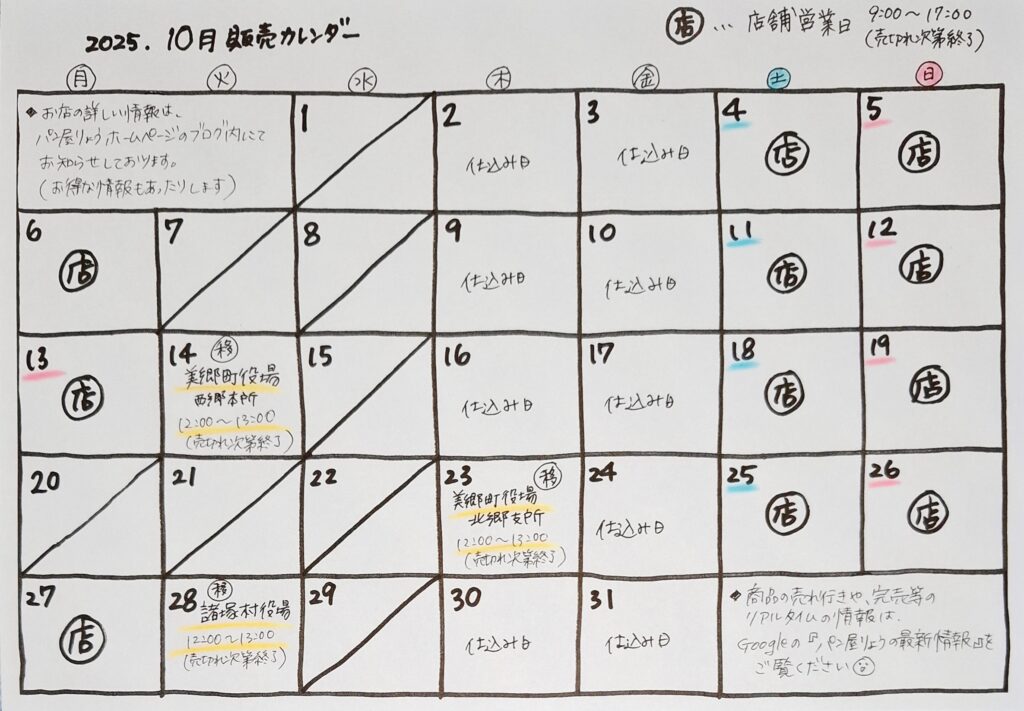 2025. 10月 販売カレンダー
店 … 店舗営業日 9:00〜17:00
(売切れ次第終了)
月 火 水 木 金 土 日
◆お店の詳しい情報は、
パン屋りょうホームページのブログ内にて
お知らせしております。
(お得な情報もあったりします)
1
2
仕込み日
3
仕込み日
4
店
5
店
6
店
7
8
9
仕込み日
10
仕込み日
11
店
12
店
13
店
14 移
美郷町役場
西郷本所
12:00〜13:00
(売切れ次第終了)
15
16
仕込み日
17
仕込み日
18
店
19
店
20
21
22
23 移
美郷町役場
北郷支所
12:00〜13:00
(売切れ次第終了)
24
仕込み日
25
店
26
店
27
店
28 移
諸塚村役場
12:00〜13:00
(売切れ次第終了)
29
30
仕込み日
31
仕込み日
◆商品の売れ行きや、完売等の
リアルタイムの情報は、
Googleの『パン屋りょうの最新情報』を
ご覧ください